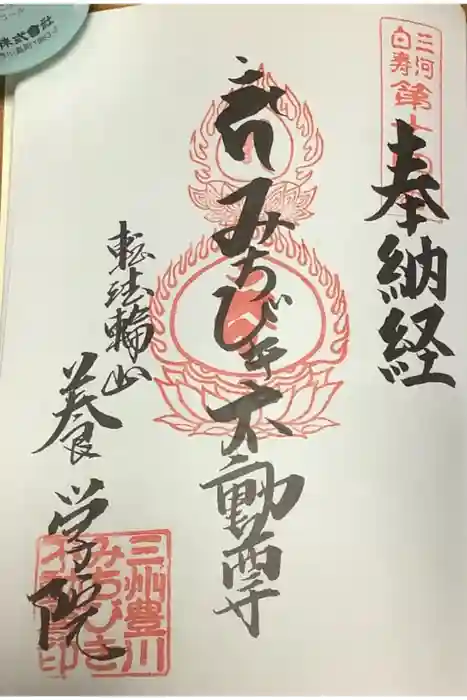 奉納経
三河
白寿
第十四
みちびき不動尊
転法輪山
養学院
三州豊川
みちびき
不動尊印
株式會社